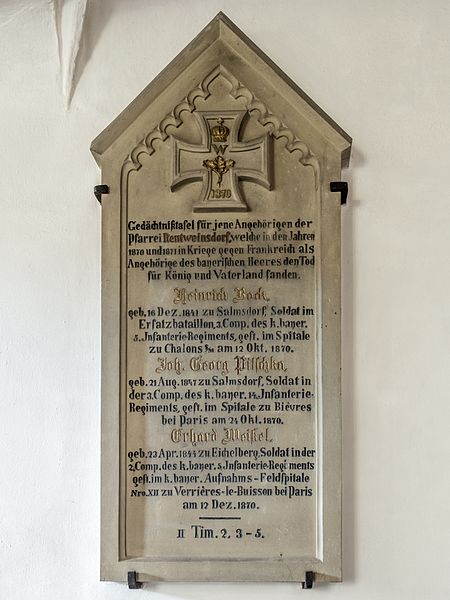 W
1870
Gedächtnißtafel für jene Angehörigen der
Pfarrei Rentweinsdorf, welche in den Jahren
1870 und 1871 in Kriege gegen Frankreich als
Angehörige des bayerischen Heeres den Tod
für König und Vaterland fanden.
Heinrich Bock,
geb. 16 Dez. 1841 zu Salmsdorf, Soldat im
Ersatzbataillon, 3. Comp. des k. bayer.
5. Infanterie-Regiments, gest. im Spitale
zu Chalons s/m am 12 Okt. 1870.
Joh. Georg Pitschka,
geb. 21 Aug. 1847 zu Salmsdorf, Soldat in
der 3. Comp. des k. bayer. 14. Infanterie-
Regiments, gest. im Spitale zu Bièvres
bei Paris am 24 Okt. 1870.
Erhard Weißel,
geb. 22 Apr. 1844 zu Eichelberg, Soldat in der
2. Comp. des k. bayer. 5 Infanterie-Regiments
gest. im k. bayer. Aufnahms-Feldspitale
Nro. XII zu Verrières-le-Buisson bei Paris
am 12 Dez. 1870.
II Tim. 2, 3-5.